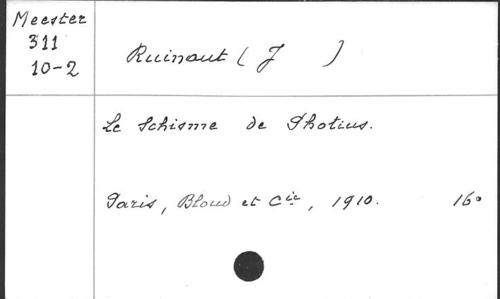 Meester
311
10-2
Ruinaut ( J )
Le Schisme de Photius.
Paris, Bloud et Cie, 1910. 16°